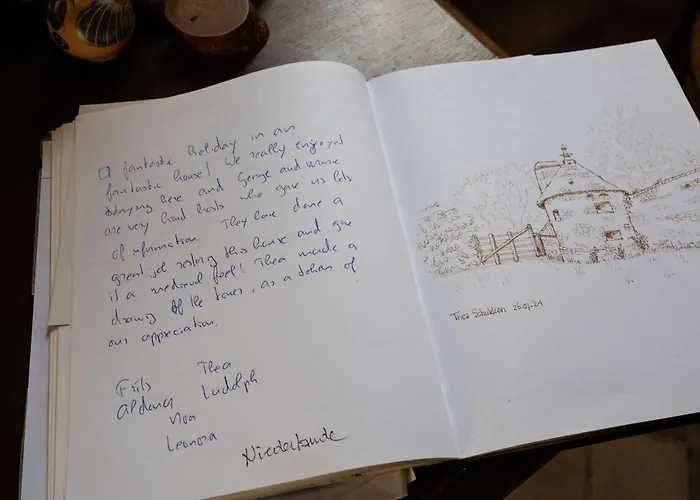 A fantastic holiday in an
fantastic house! We really enjoyed
staying here and George and
are very kind hosts who gave us lots
of information. They have done a
great job restoring this house and give
it a medieval feel! Thea made a
drawing of the tower, as a token of
our appreciation.
Frits Thea
Aldana Ludolph
Noa
Leonora
Thea 26.07.24